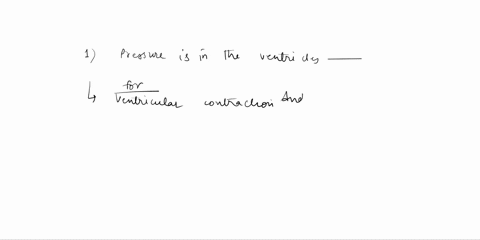 1) Pressure is in the ventricles ___
↳ for ventricular contraction And